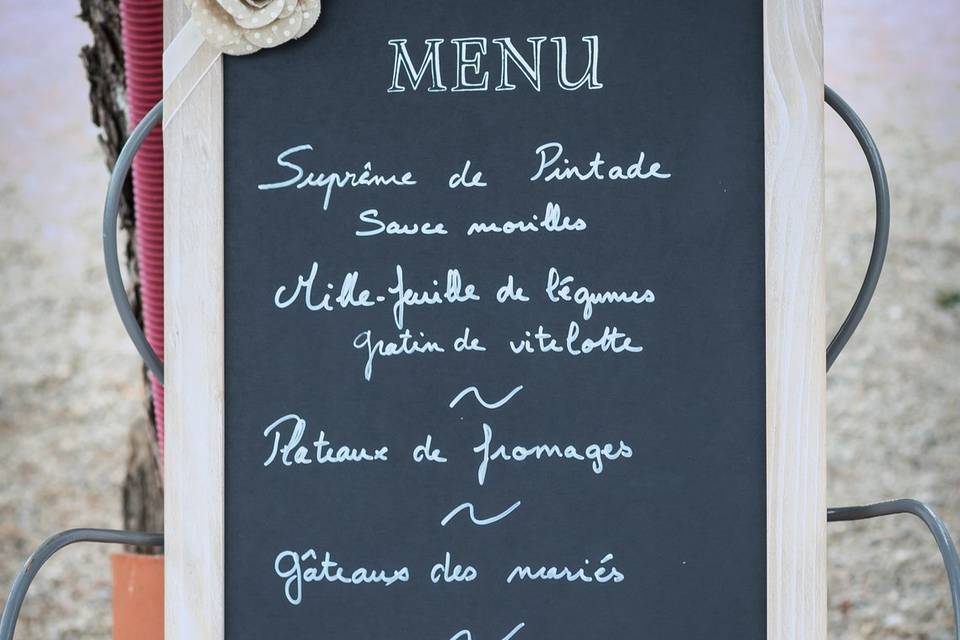 MENU
Suprême de Pintade
Sauce morilles
Mille-feuille de légumes
gratin de vitelotte
~
Plateaux de fromages
~
Gâteaux des mariés
~